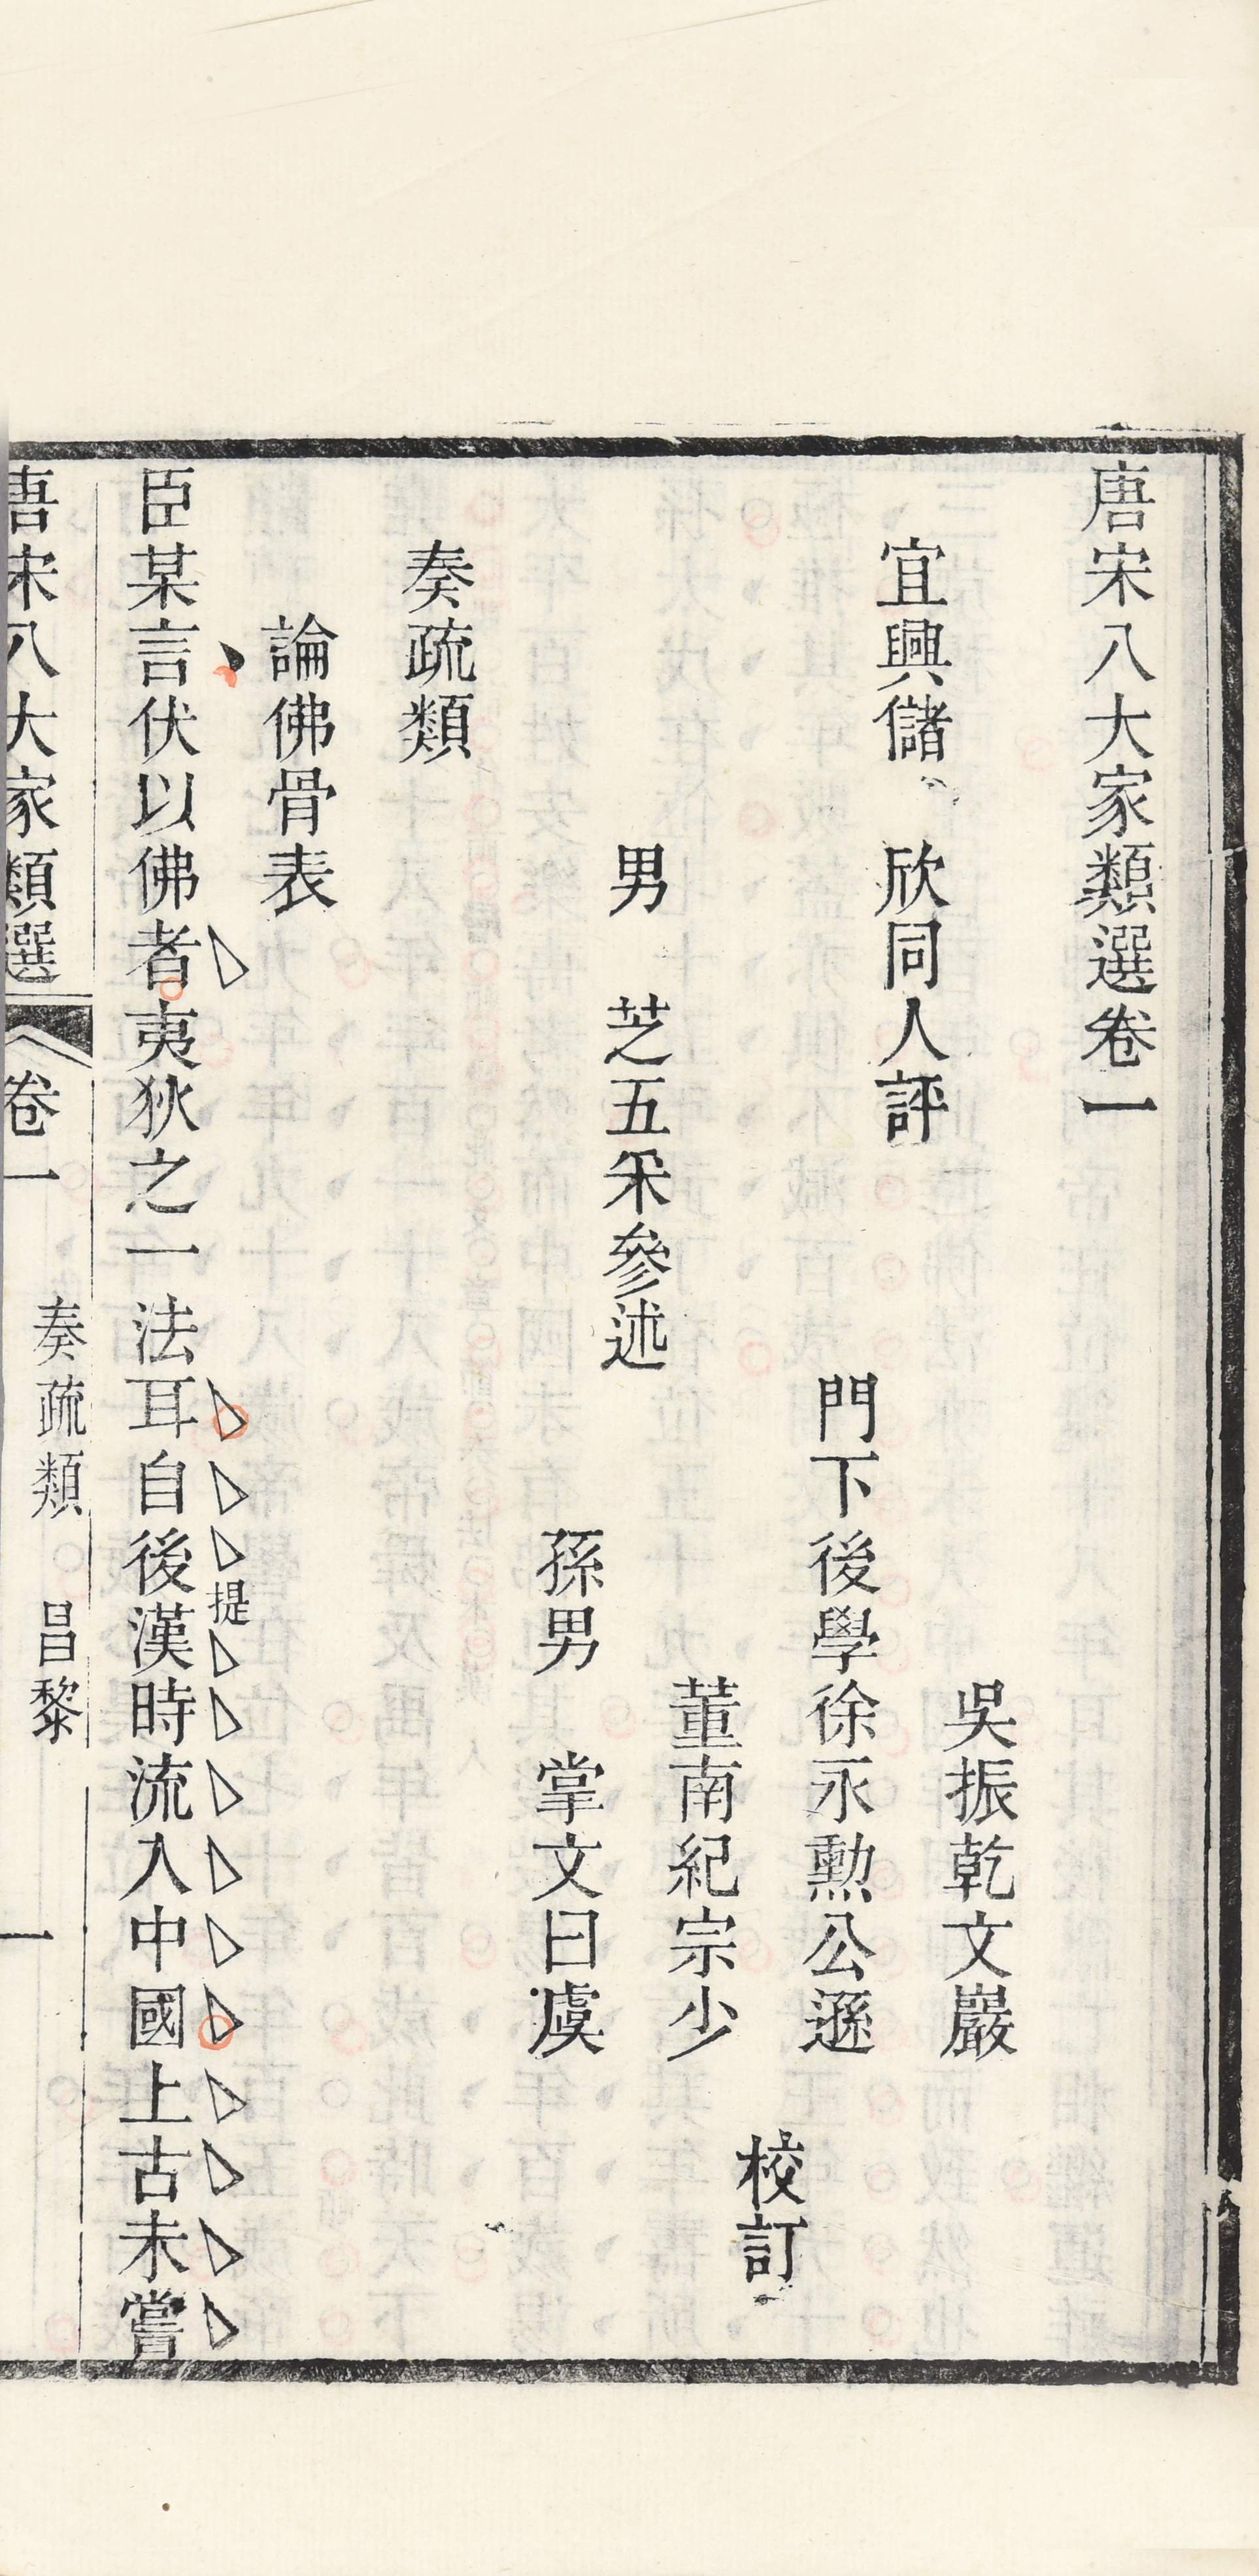 唐宋八大家類選卷一
吳振乾文巖
宜興儲　欣同人評
門下後學徐永勳公遜
校訂
董南紀宗少
男　芝五采參述
孫男　掌文曰虞
奏疏類
論佛骨表
臣某言伏以佛者夷狄之一法耳自後漢時流入中國上古未嘗
提
唐宋八大家類選　卷一　奏疏類　昌黎　一